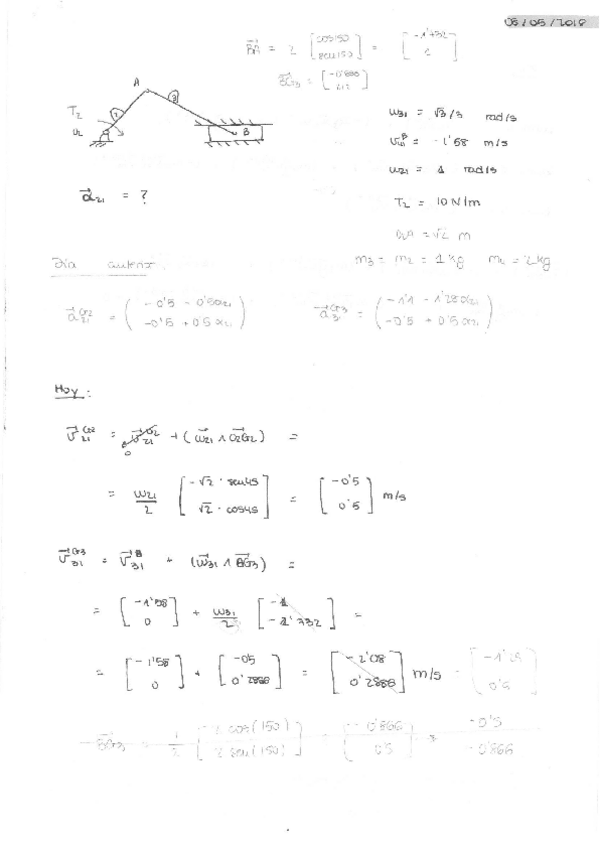 08/05/2018
BA = 2 [cos150 sen150] = [-1'732 1]
BG3 = [-0'866
A
3
T2
2
O2
B
ω31 = √3/3 rad/s
= -1'58 m/s
ω21 = 1 rad/s
α21 = ?
T2 = 10 N/m
O2A = √2 m
Día anterior
m3 = m2 = 1 kg m4 = 2 kg
a21^G2 = (-0'5 - 0'5α21 -0'5 + 0'5α21)
a31^G3 = (-1'1 - 1'28α21 -0'5 + 0'5α21)
Hoy:
v21^G2 = v21^O2 + (ω21 ∧ O2G2) =
0
= ω21/2 [-√2 · sen45 √2 · cos45] = [-0'5 0'5] m/s
v31^G3 = v31^B + (ω31 ∧ BG3) =
= [-1'58 0] + ω31/2 [-1 -1'732] =
= [-1'58 0] + [-0'5 0'2866] = [-2'08 0'2886] m/s
BG3 = 1/2 [2 cos(150) 2 sen(150)] = [-0'866 0'5] = -0'5 -0'866